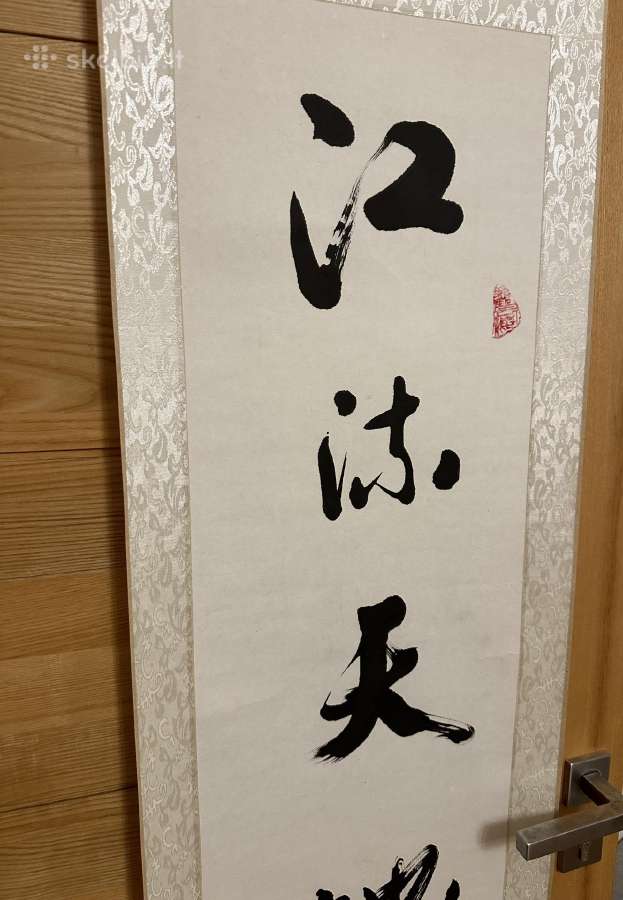 skelbiu.lt
江流天